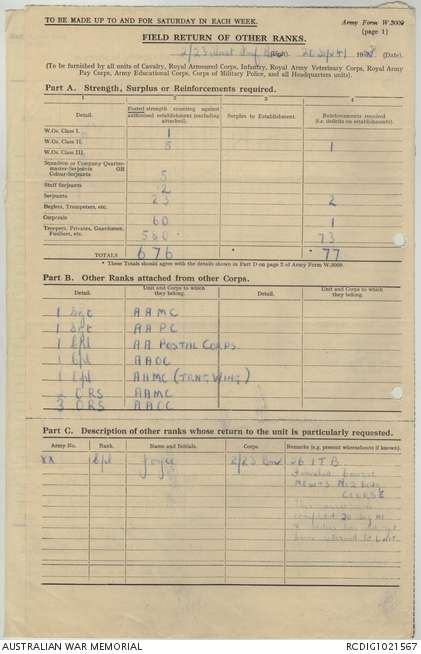 TO BE MADE UP TO AND FOR SATURDAY IN EACH WEEK.
Army Form W.3009
(page 1)
FIELD RETURN OF OTHER RANKS.
2/23 Aust Inf Bn (Date)
(To be furnished by all units of Cavalry, Royal Armoured Corps, Infantry, Royal Army Veterinary Corps, Royal Army
Pay Corps, Army Educational Corps, Corps of Military Police, and all Headquarters units).
Part A. Strength, Surplus or Reinforcements required.
1 2 3 4
Detail. Posted strength counting against authorised establishment (excluding attached). Surplus to Establishment. Reinforcements required (i.e. deficits on establishments).
W.Os. Class I. 1
W.Os. Class II. 1
W.Os. Class III.
Squadron or Company Quarter-
master-Serjeants OR
Colour-Serjeants 5
Staff Serjeants 2
Serjeants 23 2
Buglers, Trumpeters, etc.
Corporals 60 1
Troopers, Privates, Guardsmen,
Fusiliers, etc. 73
TOTALS 676 * * 77
* These Totals should agree with the details shown in Part D on page 2 of Army Form W.3009.
Part B. Other Ranks attached from other Corps.
Detail. Unit and Corps to which they belong. Detail. Unit and Corps to which they belong.
1 Sgt AAMC
1 Sgt AAPC
1 Cpl AA POSTAL CORPS
1 Cpl AAOC
1 Cpl AAMC (TRNG WING)
ORS AAMC
3 ORS AACC
Part C. Description of other ranks whose return to the unit is particularly requested.
Army No. Rank. Name and Initials. Corps. Remarks (e.g. present whereabouts if known).
VX Cpl Joyce 2/23 Bn 26 I T B
COURSE
AUSTRALIAN WAR MEMORIAL
RCDIG1021567